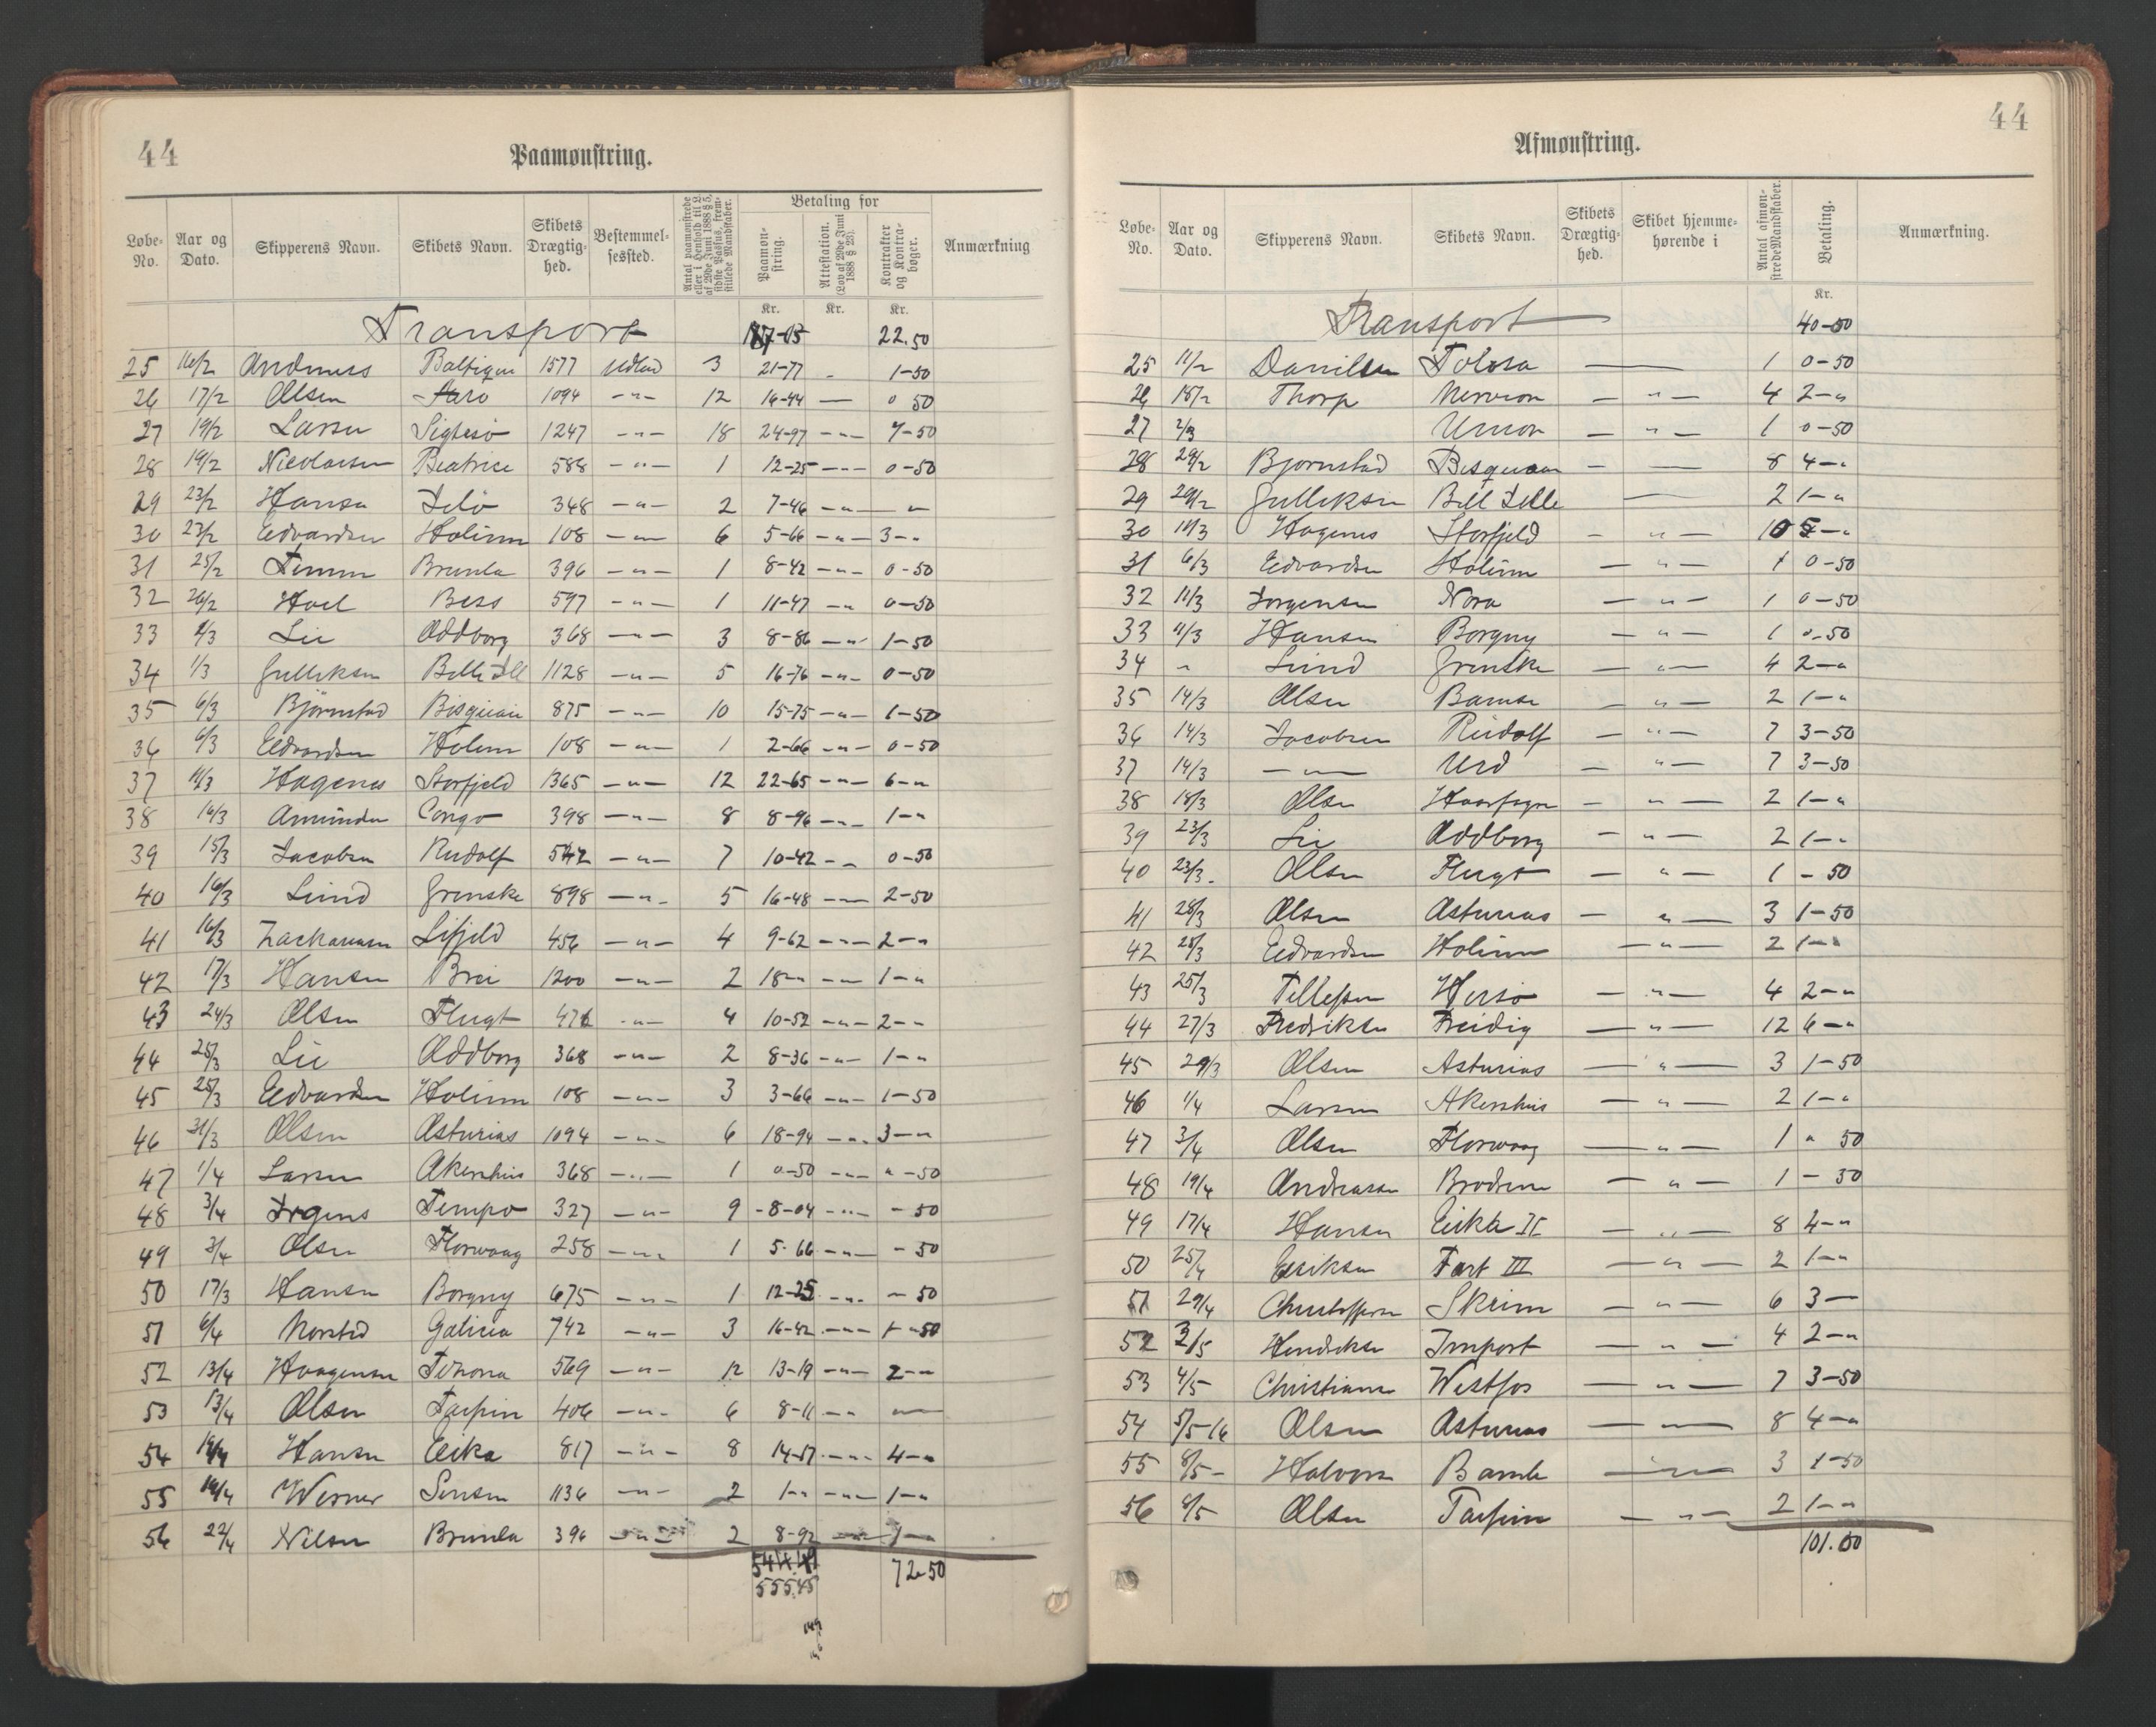 44
Paamønstring.
Løbe-No. Aar og Dato. Skipperens Navn. Skibets Navn. Skibets Drægtig-hed. Bestemmel-sessted. Antal paamønstrede eller i Henhold til L. af 29de Juni 1888 § 5, sidste Passus, frem-stillede Mandskaber. Betaling for Paamøn-string. Attestation. (Lov af 29de Juni 1888 § 23). Kontrakter og Kontra-bøger. Anmærkning
Kr. Kr. Kr.
Transport 22.50
25 16/2 Baltique 1577 Udland 3 21-77 - 1-50
26 17/2 Olsen Faro 1094 -"- 12 16-44 — 0 50
27 19/2 Larsen Sigtesø 1247 -"- 18 24-97 -"- 7-50
28 19/2 Nicolaisen Beatrice 588 -"- 1 12-25 -"- 0-50
29 23/2 Hansen 348 -"- 2 7-46 -"- "
30 23/2 Edvardsen Holinn 108 -"- 6 5-66 -"- 3-"
31 25/2 Brunla 396 -"- 1 8-42 -"- 0-50
32 26/2 Hoel Bess 597 -"- 1 11-47 -" 0-50
33 1/3 Lie Oddborg 368 -"- 3 8-86 -"- 1-50
34 1/3 Gulliksen 1128 -"- 5 16-76 -"- 0-50
35 6/3 Bjørnstad Bisquaia 875 -"- 10 15-75 -"- 1-50
36 6/3 Edvardsen Holinn 108 -"- 1 2-66 -"- 0-50
37 11/3 Hagenes Storfjeld 1365 -"- 12 22-65 -"- 6-"
38 14/3 Congo 398 -"- 8 8-96 -"- 1-"
39 15/3 Jacobsen Rudolf 542 -"- 7 10-42 -"- 0-50
40 16/3 Lund Grenske 898 -"- 5 16-48 -"- 2-50
41 16/3 Zackariasen Lifjeld 456 -"- 4 9-62 -"- 2-"
42 17/3 Hansen 1200 -"- 2 18-" -"- 1-"
43 24/3 Olsen Flugt 476 -"- 4 10-52 -"- 2-"
44 25/3 Lie Oddborg 368 -"- 2 8-36 -"- 1-"
45 25/3 Edvardsen Holinn 108 -"- 3 3-66 -"- 1-50
46 31/3 Olsen Asturias 1094 -"- 6 18-94 -"- 3-"
47 1/4 Larsen Akershus 368 -"- 1 0-50 -"- "-50
48 3/4 Jrgens Tempo 327 -"- 9 -8-04 -"- -50
49 3/4 Olsen Florvaag 258 -"- 1 5-66 -"- -50
50 17/3 Hansen Borgny 675 -"- 1 12-25 -"- -50
51 6/4 Norstrd Galicia 742 -"- 3 16-42 -"- 1-50
52 13/4 Haagensen 569 -"- 12 13-19 -"- 2-"
53 13/4 Olsen Taifun 406 -"- 6 8-11 -" —
54 14/4 Hansen Eeika 817 -"- 8 14-57 -"- 4-"
55 19/4 Werner Sensen 1136 -"- 2 1-" -"- 1-"
56 22/4 Nilsen Brunla 396 -"- 2 8-92 -"- 1-
544.49 72-50
555.45
44
Afmønstring.
Løbe-No. Aar og Dato. Skipperens Navn. Skibets Navn. Skibets Drægtig-hed. Skibet hjemme-hørende i Antal afmøn-strede Mandskaber. Betaling. Anmærkning.
Kr.
Transport 40-50
25 11/2 Danilsen Tolosa — 1 0-50
26 18/2 Thorp -"- 4 2-"
27 2/3 Union -"- 1 0-50
28 29/2 Bjørnstad Bisquaia - — 8 4-"
29 29/2 Gulliksen — 2 1-"
30 11/3 Hagenes Storfjeld -"- 10 5-"
31 6/3 Edvardsen Holinn -"- 1 0-50
32 11/3 Jorgensen Nora -"- 1 0-50
33 11/3 Hansen Borgny -"- 1 0-50
34 " Lund Grenske -"- 4 2-"
35 14/3 Olsen Bamse -"- 2 1-"
36 14/3 Jacobsen Rudolf -"- 7 3-50
37 14/3 -"- Urd -"- 7 3-50
38 18/3 Olsen Haarfagre -"- 2 1-"
39 23/3 Lie Oddborg -"- 2 1-"
40 23/3 Olsen Flugt -"- 1 - 50
41 28/3 Olsen Asturias -"- 3 1-50
42 25/3 Edvardsen Holinn -"- 2 1-"
43 25/3 Tellefsen Hersø -"- 4 2-"
44 27/3 Fredriksen Freidig -"- 12 6-"
45 29/3 Olsen Asturias -"- 3 1-50
46 1/4 Larsen Akershus -"- 2 1-"
47 3/4 Olsen Florvaag -"- 1 " 50
48 19/4 Andreasen Brodrene -"- 1 - 50
49 17/4 Hansen Eeika II -"- 8 4-"
50 25/4 Eriksen Fart III -"- 2 1-"
51 29/4 Christoffersen Skrim -"- 6 3-
52 3/5 Hendriksen Import -"- 4 2-"
53 4/5 Christiansen Westfos -"- 7 3-50
54 5/5-16 Olsen Asturias -"- 8 4-"
55 8/5- Halvorsen Bamle -"- 3 1-50
56 8/5 Olsen Taifun -"- 2 1-"
101.00